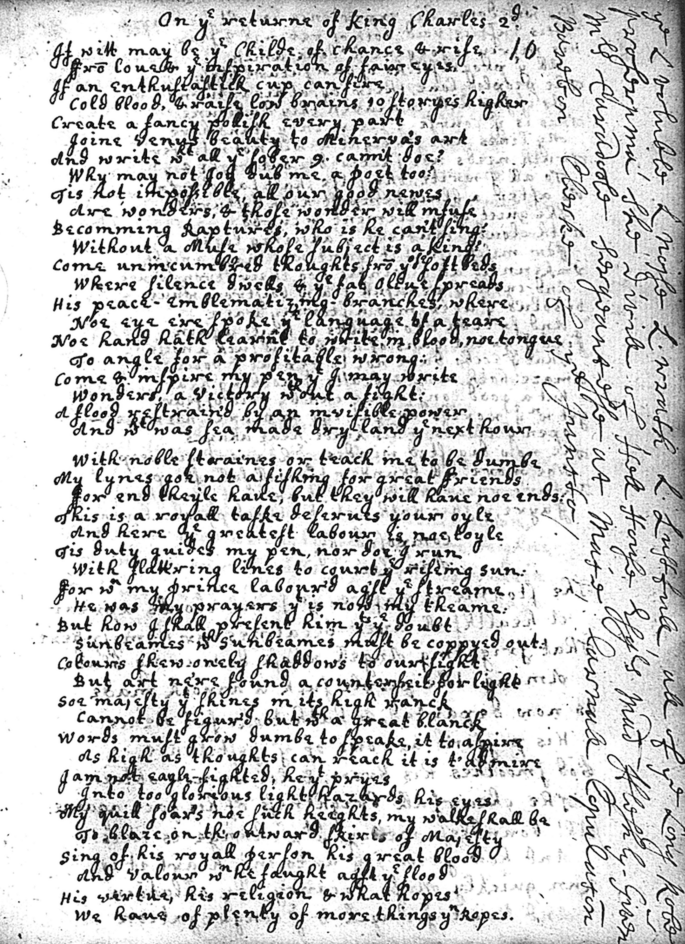 On yᵉ returne of King Charles 2ᵈ
10
If witt may be yᵉ Childe of chance & rise
Frō loue & yᵉ inspiration of fair eyes
If an enthusiastick cup can fire
Cold blood, & raise low brains 10 storyes higher
Create a fancy pollish every part
Joine Venus beauty to Minerva's art
And write wᵗ all yᵉ sober 9. cannt doe?
Why may not Joy dub me a poet too?
Tis not impossible, all our good newes
Are wonders, & those wonder will infuse
Becomming Raptures, who is he cant sing?
Without a Muse whose subject is a king?
Come unincumbred thoughts frō yᵉ soft beds
Where silence dwels & yᵉ fat oliue spreads
His peace-emblematizing branches, where
Noe eye ere spoke yᵉ language of a teare
Noe hand hath learnt to write in blood, noe tongue
To angle for a profitable wrong.
Come & inspire my pen yᵗ I may write
Wonders, a victory wᵗʰout a fight.
A flood restraind by an invisible power
And wᵗ was sea made dry land yᵉ next hour
With noble straines or teach me to be dumbe
My lynes goe not a fishing for great friends
For end theyle haue, but they will haue noe ends.
This is a royall taske deserues your oyle
And here yᵉ greatest labour is noe toyle
Tis duty guides my pen, nor doe I run
With flattring lines to court yᵉ riseing sun.
For wⁿ my prince labour'd agˢᵗ yᵉ streame
He was my prayers yᵗ is now my theame.
But how I shall present him yᵉʳᵉ yᵉ doubt
Sunbeames wᵗʰ Sunbeames must be coppyed out.
Colours shew onely shaddows to our sight
But art nere found a counterfeit for light
Soe majesty yᵗ shines in its high ranck
Cannot be figur'd but wᵗʰ a great blanck
Words must grow dumbe to speake, it to aspire
As high as thoughts can reach it is t'admire
I am not eagle-sighted, he yᵗ pryes
Into too glorious light hazards his eyes
My quill soars noe such heights, my walke shall be
To blaze on th outward skirts of Majesty
Sing of his royall person his great blood
And valour wⁿ he faught agˢᵗ yᵉ flood
His virtue, his religion & what hopes
We haue of plenty of more things yⁿ Ropes.